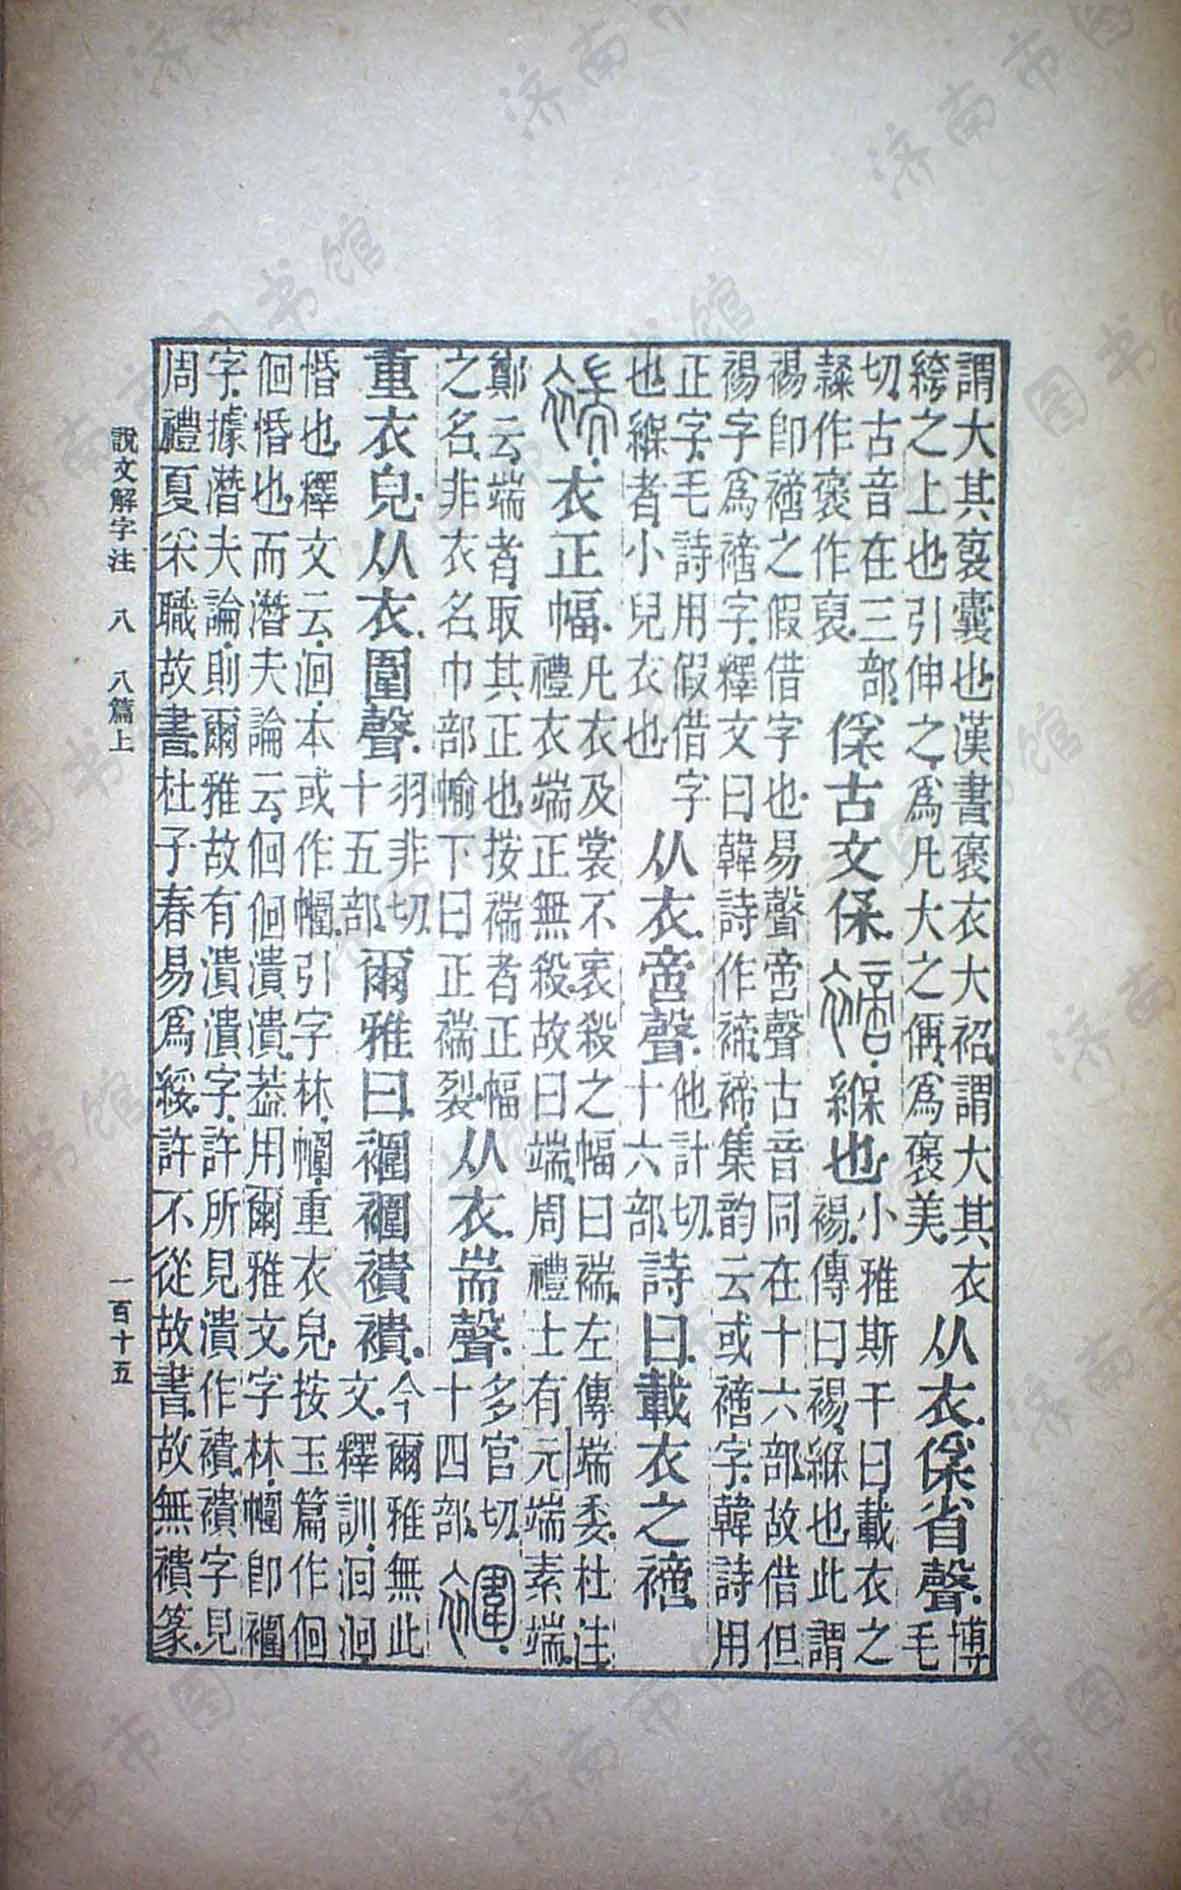 謂大其裒囊也漢書褒衣大袑謂大其衣
絝之上也引伸之爲凡大之偁爲褒美
从衣𠈃省聲
博毛
切古音在三部
隸作褒作裒
𠈃古文保
䙗緥也
小雅斯干曰載衣之
裼傳曰裼緥也此謂
裼卽䙗之假借字也易聲啻聲古音同在十六部故借但
裼字爲䙗字釋文曰韓詩作褅褅集韵云或䙗字韓詩用
正字毛詩用假借字
也緥者小兒衣也
从衣啻聲
他計切
十六部
詩曰載衣之䙗
褍衣正幅
凡衣及裳不衺殺之幅曰褍左傳端委杜注
禮衣端正無殺故曰端周禮士有元端素端
鄭云端者取其正也按褍者正幅
之名非衣名巾部㡏下曰正褍裂
从衣耑聲
多官切
十四部
䙟
重衣皃从衣圍聲
羽非切
十五部
爾雅曰䙟䙟襀襀
今爾雅無此
文釋訓洄洄
惛也釋文云洄本或作㡢引字林㡢重衣皃按玉篇作佪
佪惛也而潛夫論云佪佪潰潰葢用爾雅文字林㡢卽䙟
字據潛夫論則爾雅故有潰潰字許所見潰作襀襀字見
周禮夏采職故書杜子春易爲綏許不從故書故無襀篆
說文解字注 八 八篇上 一百十五
济南市图书馆